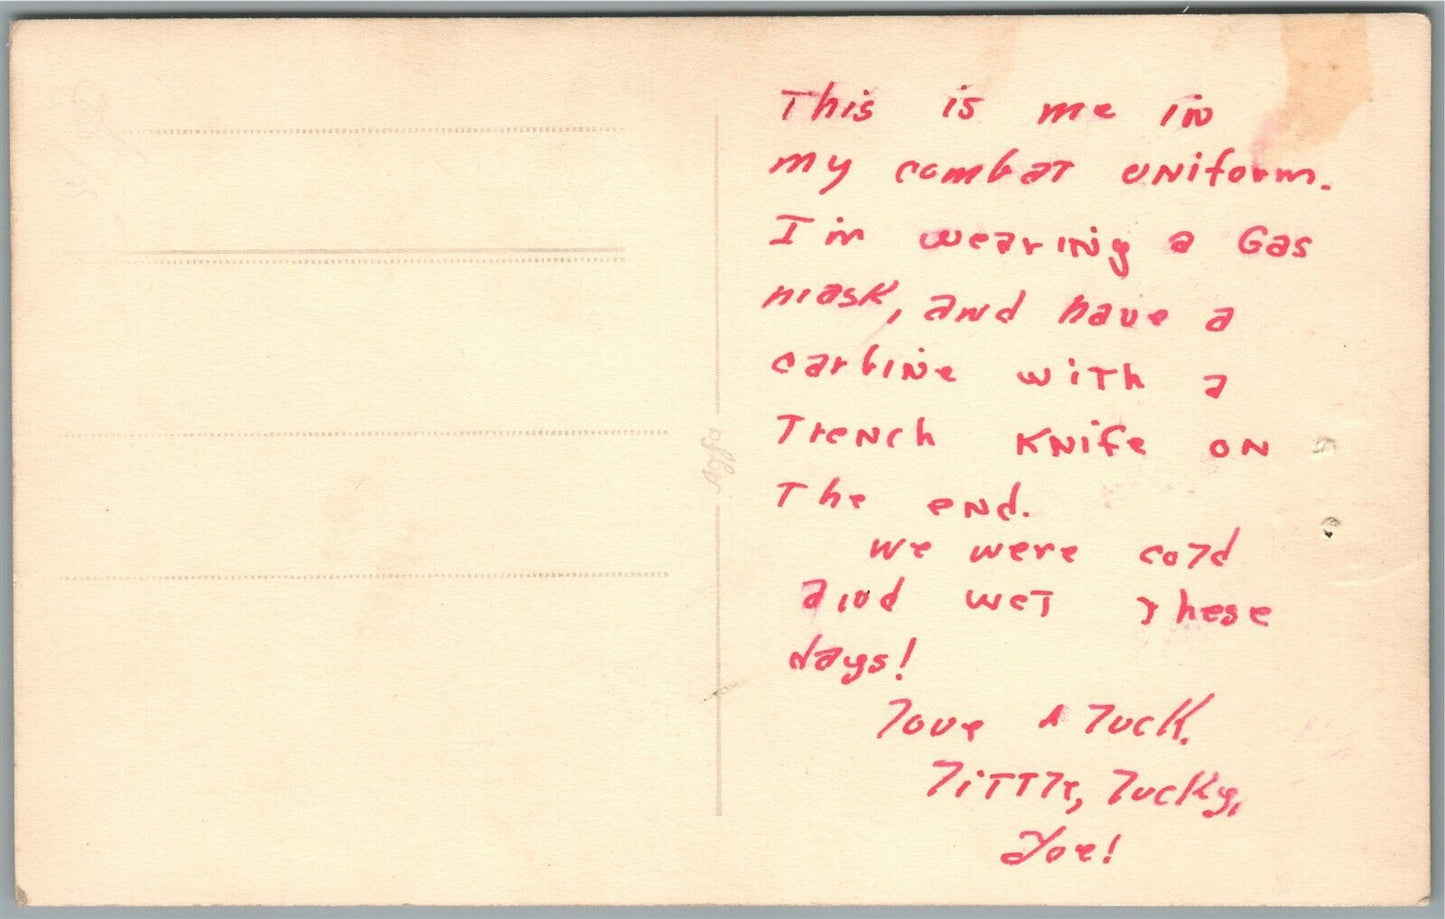 This is me in
my combat uniform.
I'm wearing a Gas
mask, and have a
carbine with a
Trench Knife on
The end.
We were cold
and wet these
days!
Love & Luck.
Little, Lucky,
Joe!